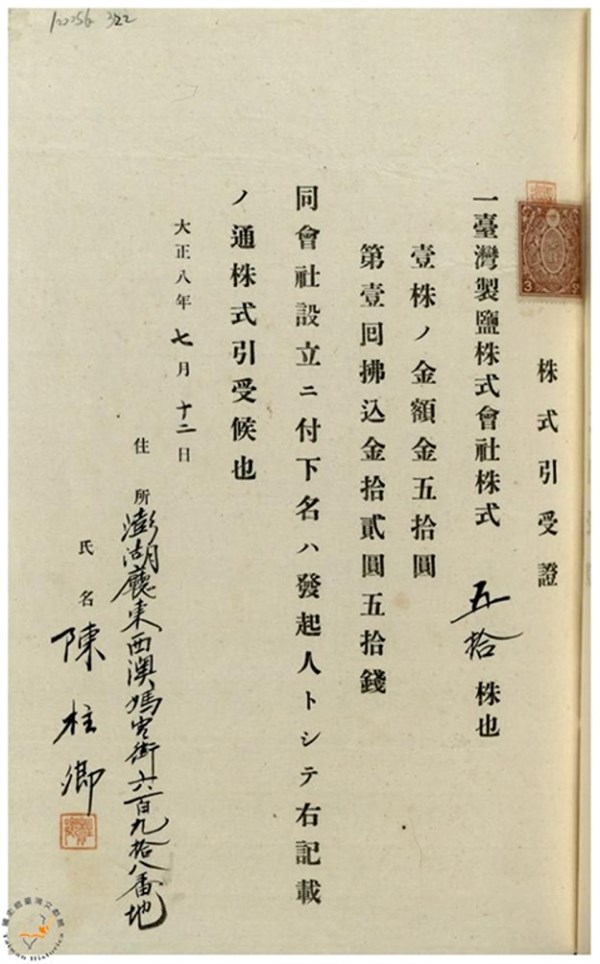 100056 322
3
株式引受證
一臺灣製鹽株式會社株式 五拾 株也
壹株ノ金額金五拾圓
第壹回拂込金拾貳圓五拾錢
同會社設立ニ付下名ハ發起人トシテ右記載
ノ通株式引受候也
大正八年七月十二日
住所 澎湖廳東西澳媽宮街六百九拾八番地
氏名 陳柱卿
Taiwan Historica